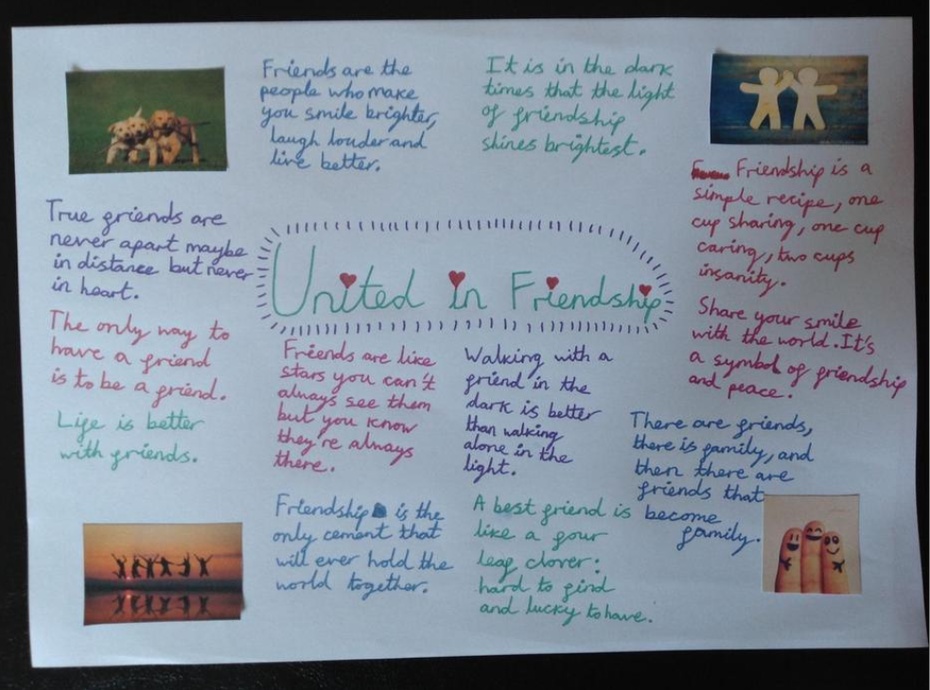 Friends are the
people who make
you smile brighter,
laugh louder and
live better.
It is in the dark
times that the light
of friendship
shines brightest.
True friends are
never apart maybe
in distance but never
in heart.
The only way to
have a friend
is to be a friend.
Life is better
with friends.
United in Friendship
Friendship is a
simple recipe, one
cup sharing, one cup
caring, two cups
insanity.
Share your smile
with the world. It's
a symbol of friendship
and peace.
Friends are like
stars you can't
always see them
but you know
they're always
there.
Walking with a
friend in the
dark is better
than walking
alone in the
light.
There are friends,
there is family, and
then there are
friends that
become
family.
Friendship is the
only cement that
will ever hold the
world together.
A best friend is
like a four
leaf clover:
hard to find
and lucky to have.